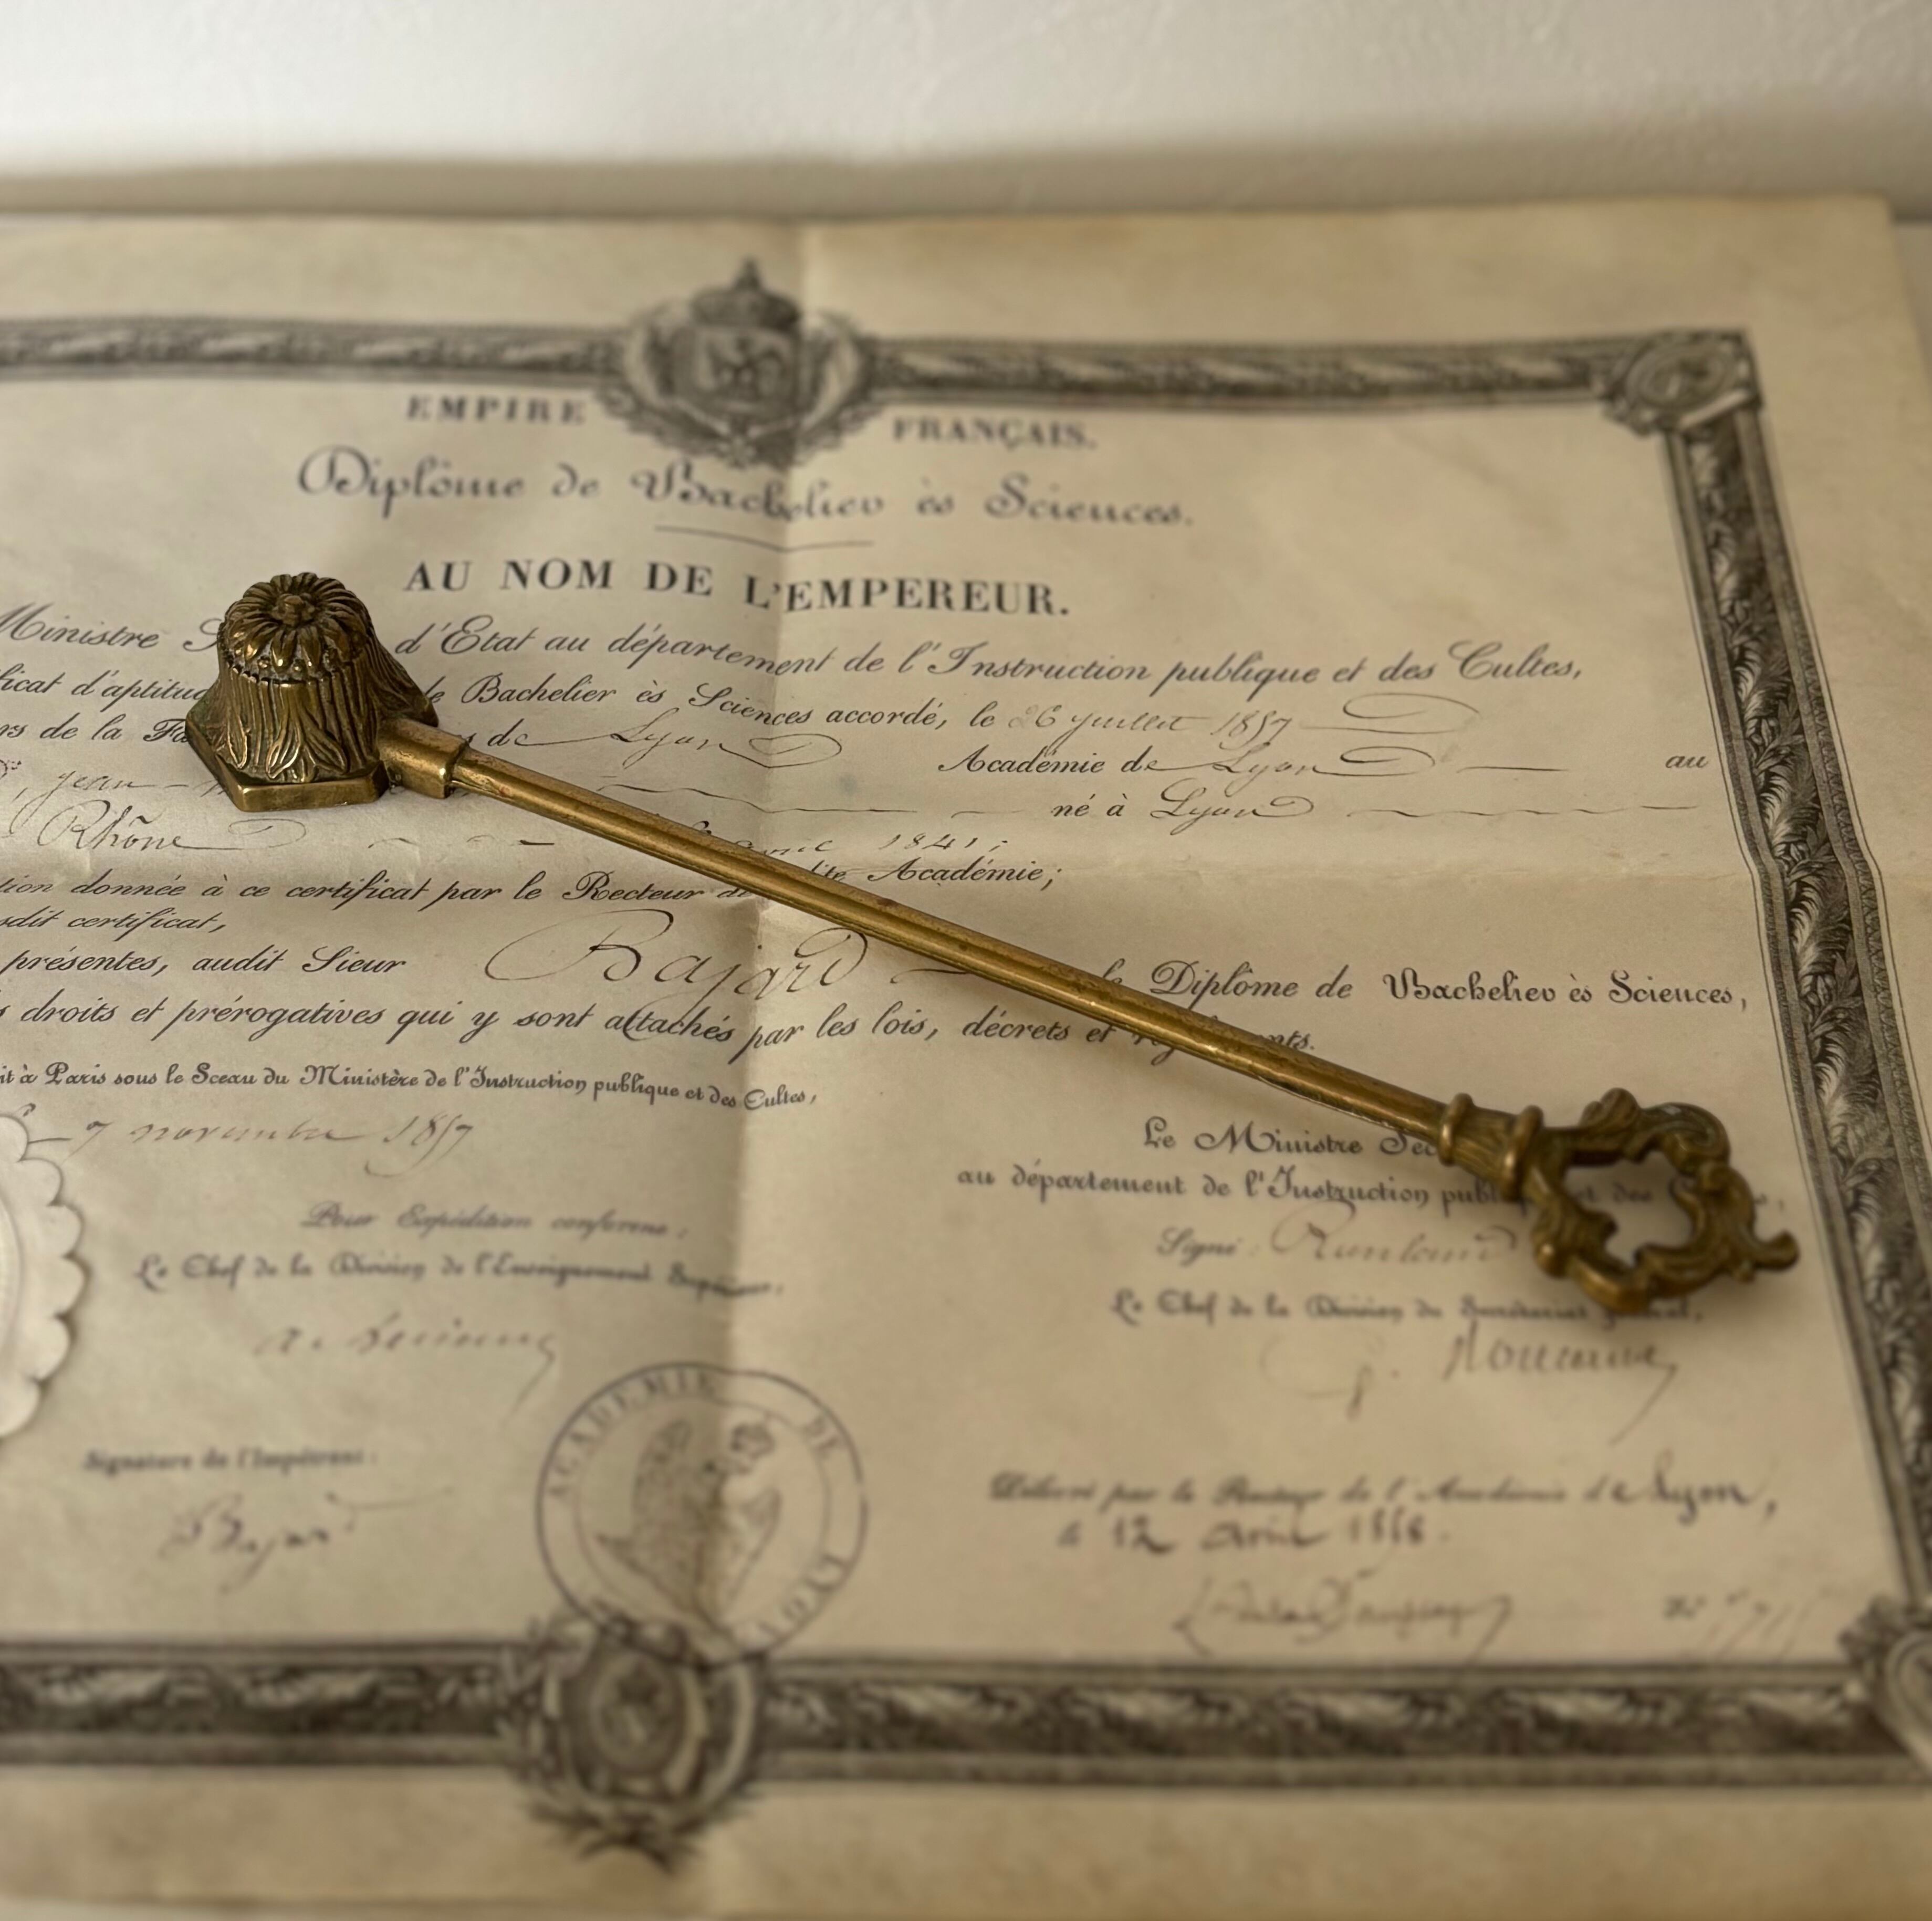 EMPIRE FRANÇAIS.
Diplôme de Bachelier ès Sciences.
AU NOM DE L'EMPEREUR.
Ministre d'Etat au département de l'Instruction publique et des Cultes,
ficat d'aptitud de Bachelier ès Sciences accordé, le 26 juillet 1857
rs de la Fa s de Lyon Académie de Lyon au
, jean - né à Lyon
Rhône 1841;
tion donnée à ce certificat par le Recteur de dite Académie;
sdit certificat,
présentes, audit Sieur Bajard le Diplôme de Bachelier ès Sciences,
s droits et prérogatives qui y sont attachés par les lois, décrets et règlements.
it à Paris sous le Sceau du Ministère de l'Instruction publique et des Cultes,
7 novembre 1857
Le Ministre Sec
au département de l'Instruction publique et des
Pour Expédition conforme,
Signé: Rouland
Le Chef de la Division de l'Enseignement Supérieur,
Le Chef de la Division du Secrétariat général,
Signature de l'Impétrant:
Bajard
ACADEMIE DE LYON
Délivré par le Recteur de l'Académie de Lyon,
le 12 avril 1858.